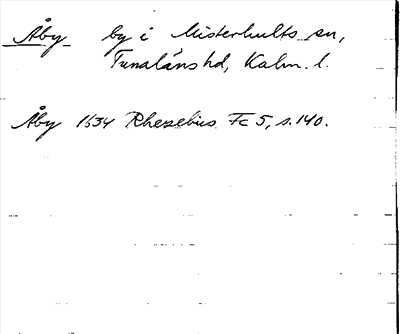 Åby by i Misterhults sn,
Tunaläns hd, Kalm. l.
Åby 1634 Rhezelius Fc 5, s. 140.